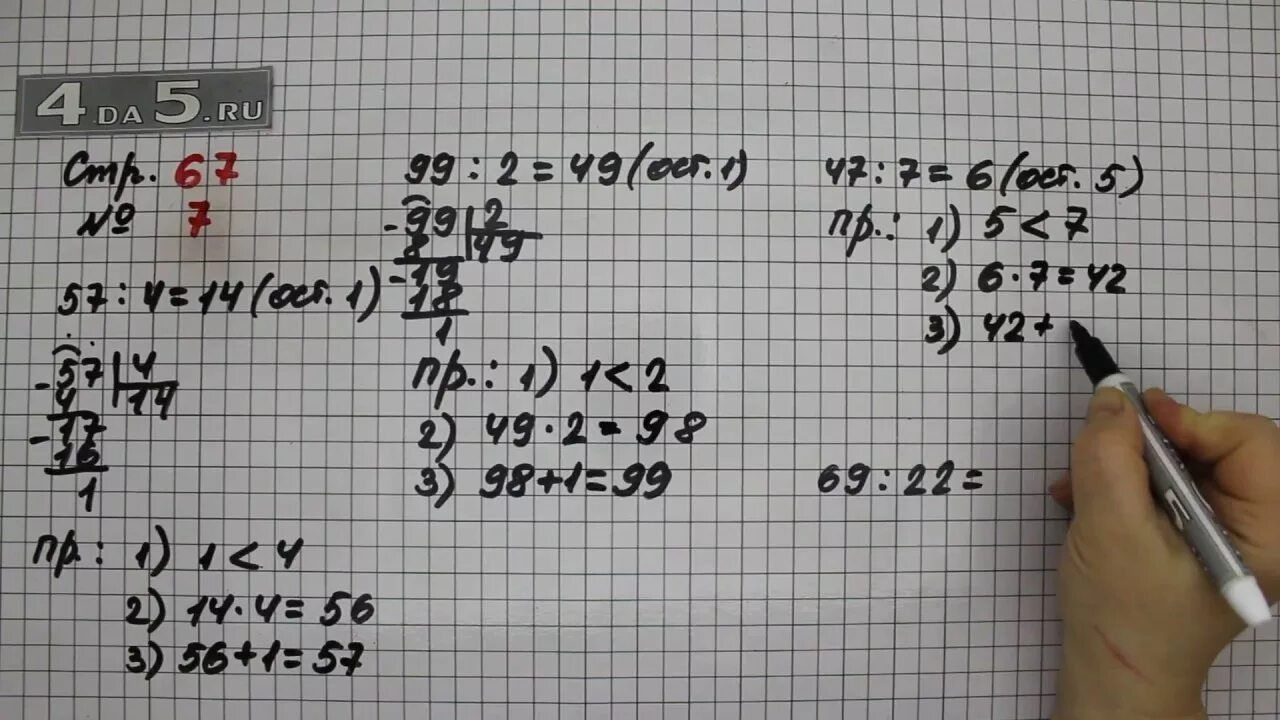 4DA5.RU
Стр. 67
№ 7
57 : 4 = 14 (ост. 1)
- 57 | 4
4 | 14
- 17
16
1
пр.: 1) 1 < 4
2) 14 · 4 = 56
3) 56 + 1 = 57
99 : 2 = 49 (ост. 1)
- 99 | 2
8 | 49
- 19
18
1
пр.: 1) 1 < 2
2) 49 · 2 = 98
3) 98 + 1 = 99
47 : 7 = 6 (ост. 5)
пр.: 1) 5 < 7
2) 6 · 7 = 42
3) 42 +
69 : 22 =